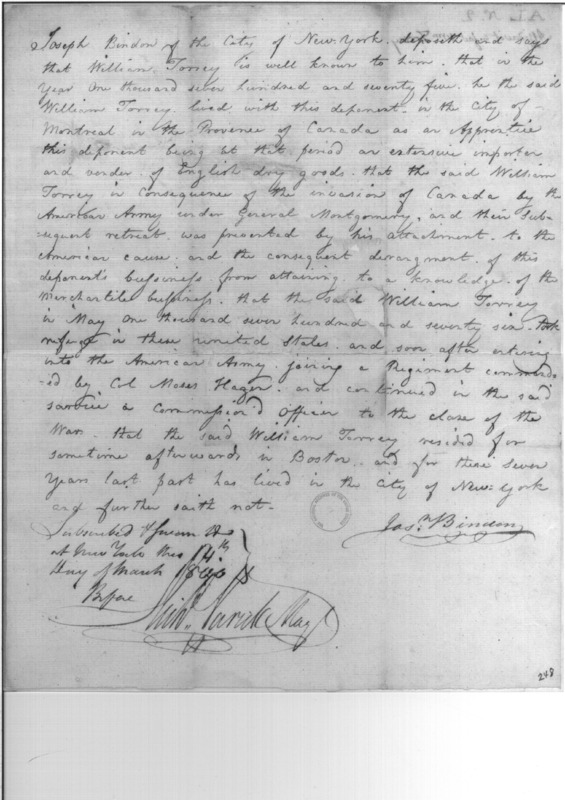 Joseph Bindon of the City of New-York deposeth and says
that William Torrey is well known to him that in the
Year One thousand seven hundred and seventy five he the said
William Torrey lived with this deponent in the City of
Montreal in the Provence of Canada as an Apprentice
this deponent being at that period an extensive importer
and vender of English dry goods that the said William
Torrey in Consequence of the invasion of Canada by the
American Army under General Montgomery, and their Sub-
sequent retreat was prevented by his attachment to the
American cause and the consequent derangment of this
deponents bussiness from attaining to a knowledge of the
Merchantile bussiness. that the said William Torrey
in May One thousand seven hundred and seventy six Took
refuge in these united States and soon after entering
into the American Army joining a Regiment command-
-ed by Col Moses Hazen and continued in the said
service a Commission'd Officer to the close of the
War. that the said William Torrey resided for
sometime afterwards in Boston and for these seven
Years last past has lived in the City of New-York
and further saith not-
Jos.h Bindon
Subscribed & Sworn
at New York this 14th
Day of March
Before
Rich.d Varick May
248